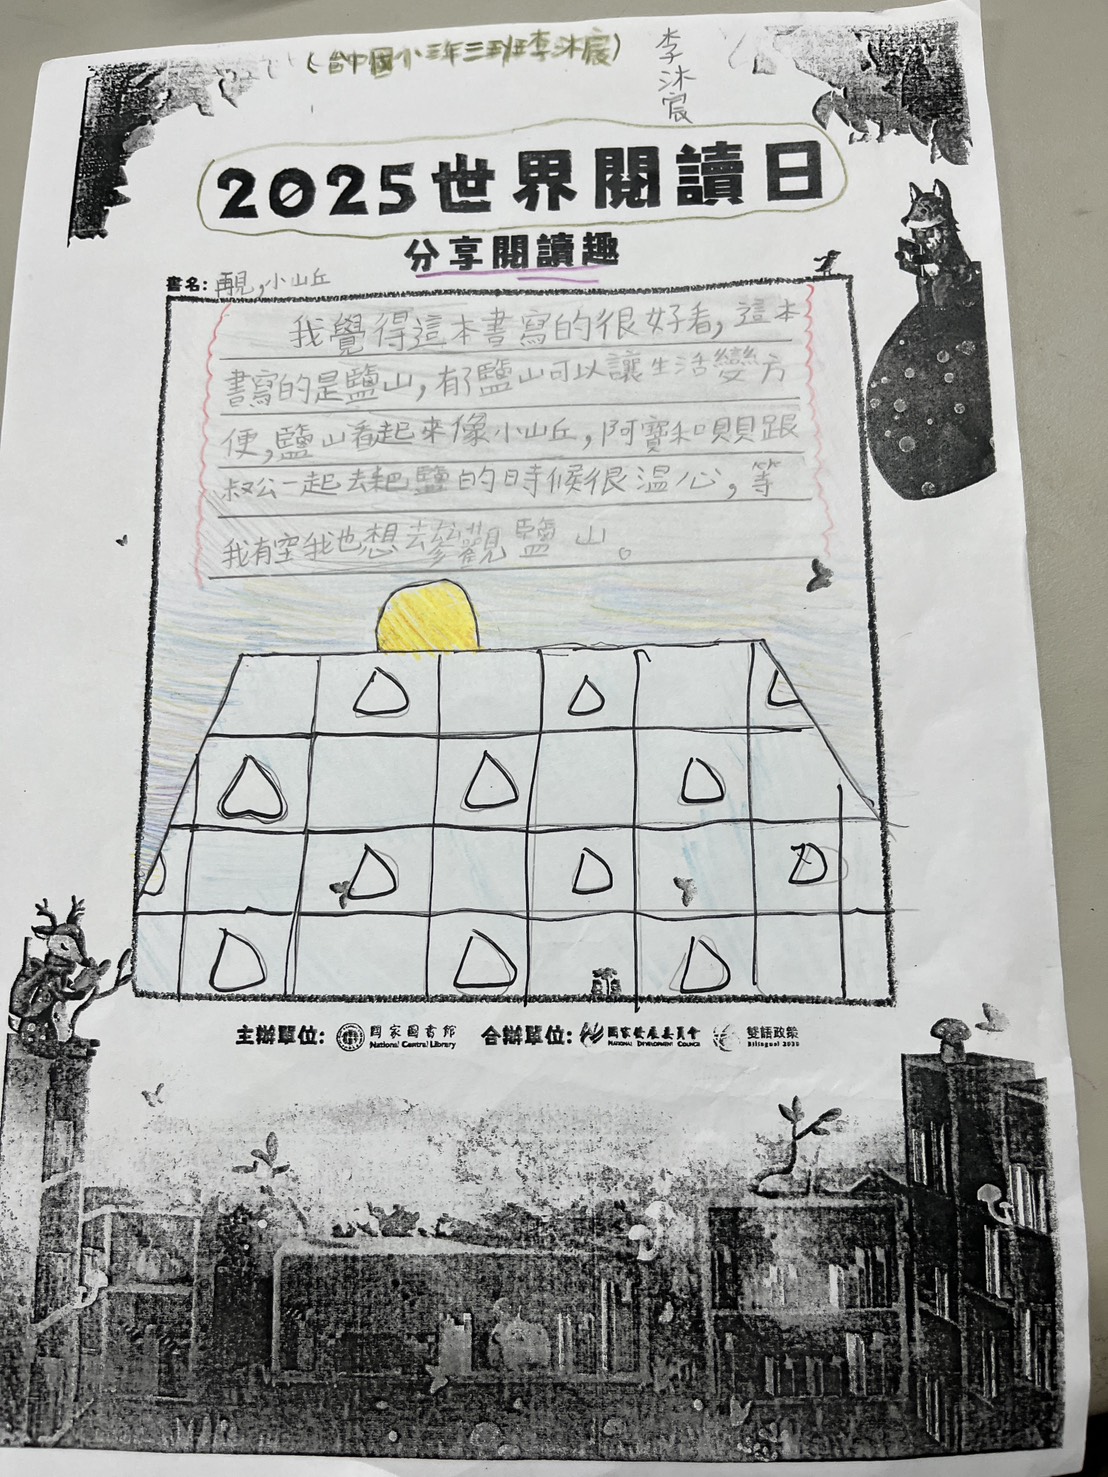 (台中國小三年三班李沐宸)
李沐宸
2025世界閱讀日
分享閱讀趣
書名:再見,小山丘
我覺得這本書寫的很好看,這本
書寫的是鹽山,有了鹽山可以讓生活變方
便,鹽山看起來像小山丘,阿寶和唄唄跟
叔公一起去耙鹽的時候很溫心,等
我有空我也想去參觀鹽山。
主辦單位: 國家圖書館 National Central Library 合辦單位: 國家發展委員會 NATIONAL DEVELOPMENT COUNCIL 雙語政策 Bilingual 2030